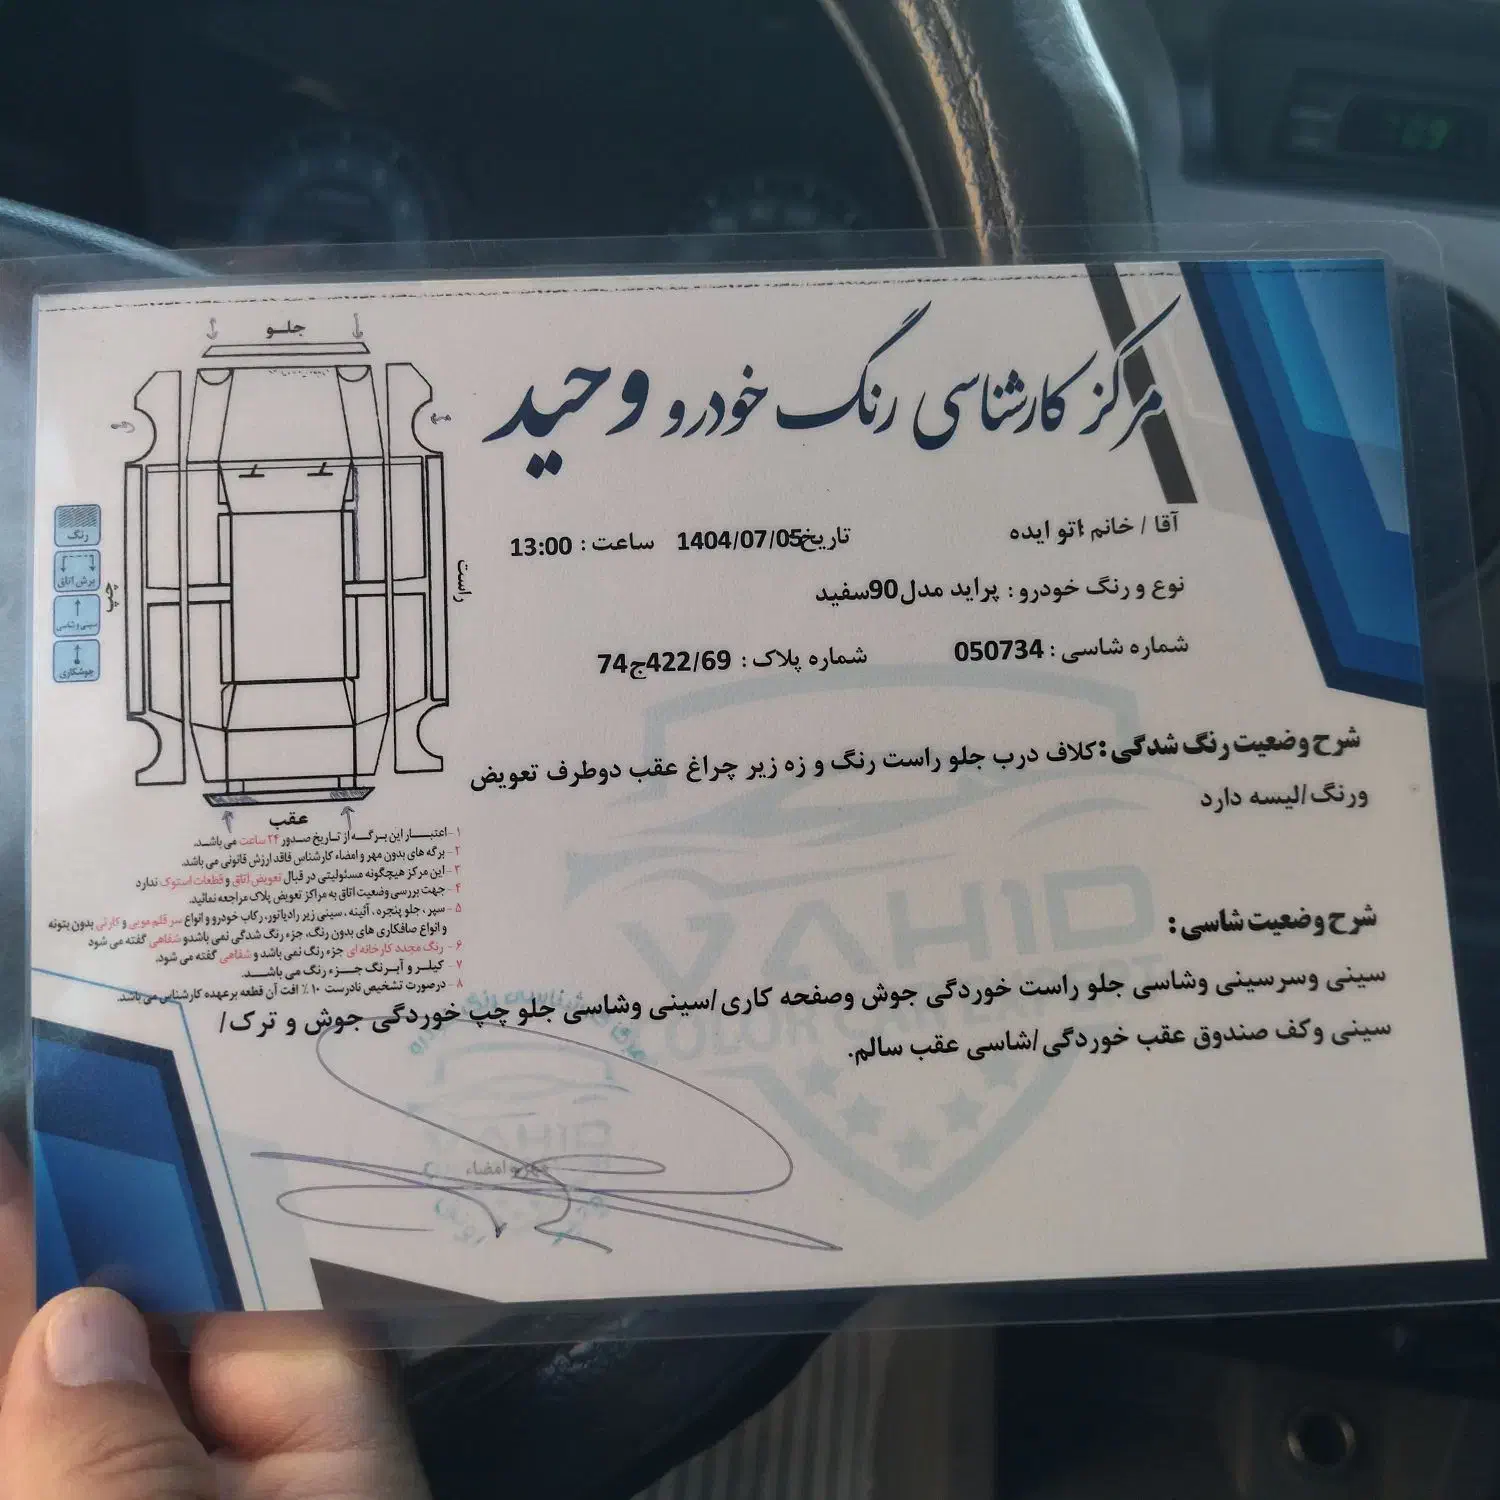 مرکز کارشناسی رنگ خودرو وحید
آقا / خانم : اتو ایده
تاریخ 1404/07/05 ساعت : 13:00
نوع و رنگ خودرو : پراید مدل 90سفید
شماره شاسی : 050734
شماره پلاک : 422/69ج74
شرح وضعیت رنگ شدگی : کلاف درب جلو راست رنگ و زه زیر چراغ عقب دوطرف تعویض
ورنگ/لیسه دارد
شرح وضعیت شاسی :
سینی وسرسینی وشاسی جلو راست خوردگی جوش وصفحه کاری/سینی وشاسی جلو چپ خوردگی جوش و ترک/
سینی وکف صندوق عقب خوردگی/شاسی عقب سالم.
جلو
راست
چپ
عقب
رنگ
برش اتاق
سینی و شاسی
جوشکاری
۱- اعتبار این برگه از تاریخ صدور ۲۴ ساعت می باشد.
۲- برگه های بدون مهر و امضاء کارشناس فاقد ارزش قانونی می باشد.
۳- این مرکز هیچگونه مسئولیتی در قبال تعویض اتاق و قطعات استوک ندارد
۴- جهت بررسی وضعیت اتاق به مراکز تعویض پلاک مراجعه نمائید.
۵- سپر ، جلو پنجره ، آئینه ، سینی زیر رادیاتور، رکاب خودرو و انواع سر قلم مویی و کارتی بدون بتونه
و انواع صافکاری های بدون رنگ، جزء رنگ شدگی نمی باشد و شفاهی گفته می شود
۶- رنگ مجدد کارخانه ای جزء رنگ نمی باشد و شفاهی گفته می شود.
۷- کیلر و آبرنگ جزء رنگ می باشد.
۸- درصورت تشخیص نادرست ۱۰ ٪ افت آن قطعه برعهده کارشناس می باشد.
VAHID
مهر و امضاء